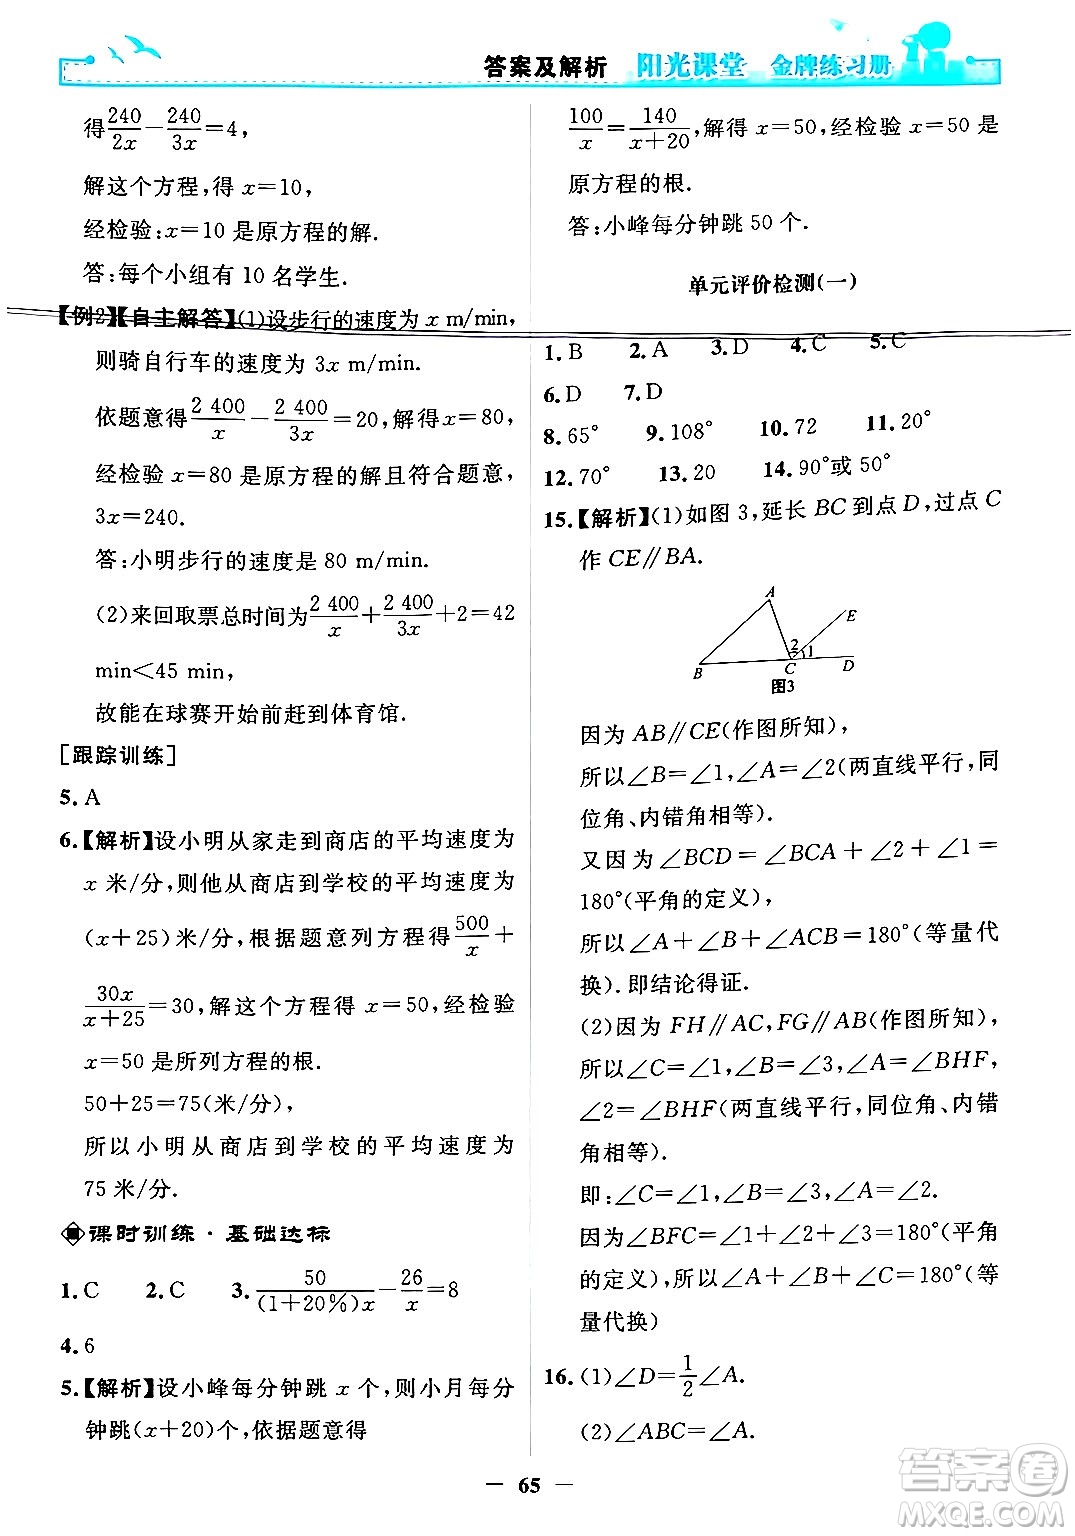 答案及解析 阳光课堂 金牌练习册
得240/2x－240/3x＝4，
解这个方程，得 x＝10，
经检验：x＝10 是原方程的解.
答：每个小组有 10 名学生.
【例2】【自主解答】(1)设步行的速度为 x m/min，
则骑自行车的速度为 3x m/min.
依题意得2 400/x－2 400/3x＝20，解得 x＝80，
经检验 x＝80 是原方程的解且符合题意，
3x＝240.
答：小明步行的速度是 80 m/min.
(2)来回取票总时间为2 400/x＋2 400/3x＋2＝42
min＜45 min，
故能在球赛开始前赶到体育馆.
[跟踪训练]
5.A
6.【解析】设小明从家走到商店的平均速度为
x 米/分，则他从商店到学校的平均速度为
(x＋25)米/分，根据题意列方程得500/x＋
30x/x＋25＝30，解这个方程得 x＝50，经检验
x＝50 是所列方程的根.
50＋25＝75(米/分)，
所以小明从商店到学校的平均速度为
75 米/分.
课时训练·基础达标
1.C 2.C 3.50/(1＋20%)x－26/x＝8
4.6
5.【解析】设小峰每分钟跳 x 个，则小月每分
钟跳(x＋20)个，依据题意得
100/x＝140/x＋20，解得 x＝50，经检验 x＝50 是
原方程的根.
答：小峰每分钟跳 50 个.
单元评价检测(一)
1.B 2.A 3.D 4.C 5.C
6.D 7.D
8.65° 9.108° 10.72 11.20°
12.70° 13.20 14.90°或 50°
15.【解析】(1)如图 3，延长 BC 到点 D，过点 C
作 CE∥BA.
A
E
2
1
B
C
D
图3
因为 AB∥CE(作图所知)，
所以∠B＝∠1，∠A＝∠2(两直线平行，同
位角、内错角相等).
又因为∠BCD＝∠BCA＋∠2＋∠1＝
180°(平角的定义)，
所以∠A＋∠B＋∠ACB＝180°(等量代
换).即结论得证.
(2)因为 FH∥AC，FG∥AB(作图所知)，
所以∠C＝∠1，∠B＝∠3，∠A＝∠BHF，
∠2＝∠BHF(两直线平行，同位角、内错
角相等).
即：∠C＝∠1，∠B＝∠3，∠A＝∠2.
因为∠BFC＝∠2＋∠1＋∠3＝180°(平角
的定义)，所以∠A＋∠B＋∠C＝180°(等
量代换)
16.(1)∠D＝1/2∠A.
(2)∠ABC＝∠A.
— 65 —
答案圈
MXQE.COM